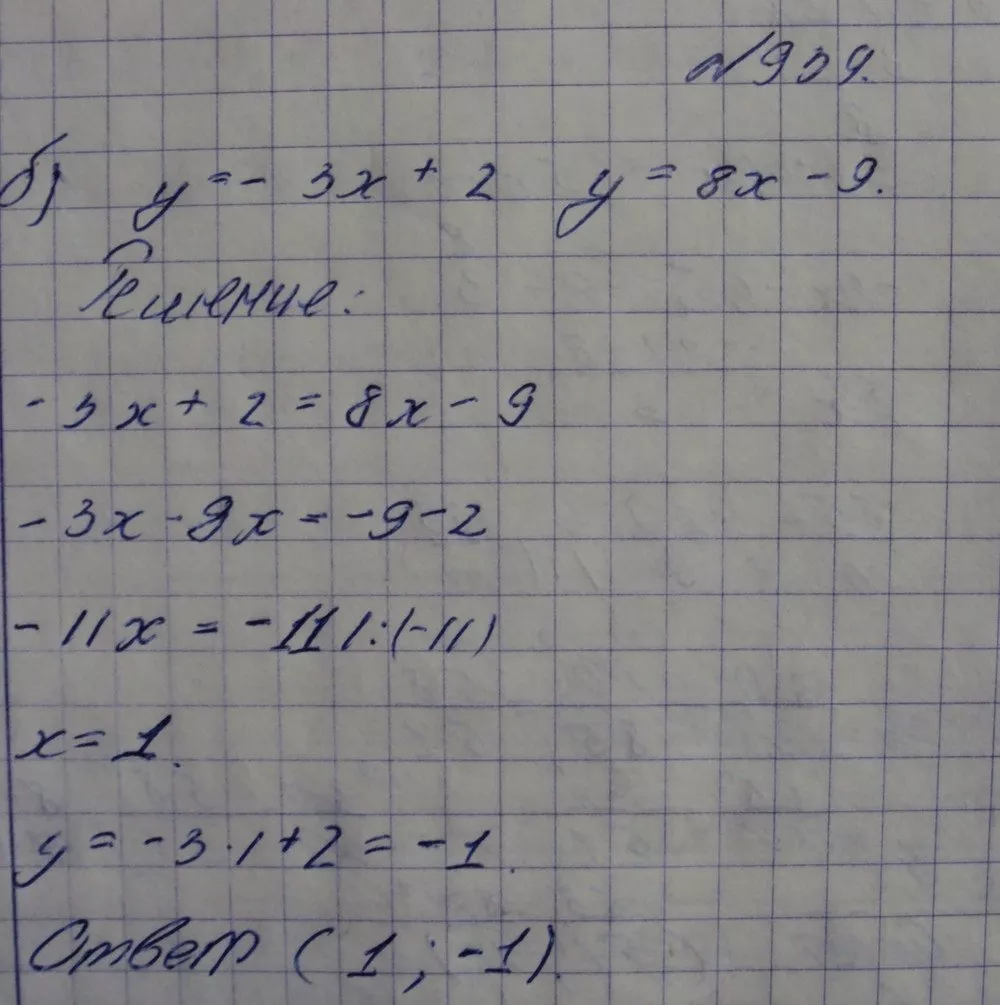 №939.
б) y = - 3x + 2 y = 8x - 9.
Решение:
- 3x + 2 = 8x - 9
- 3x - 8x = -9 - 2
- 11x = -11 |:(-11)
x = 1.
y = -3·1+2 = -1.
Ответ (1; -1).